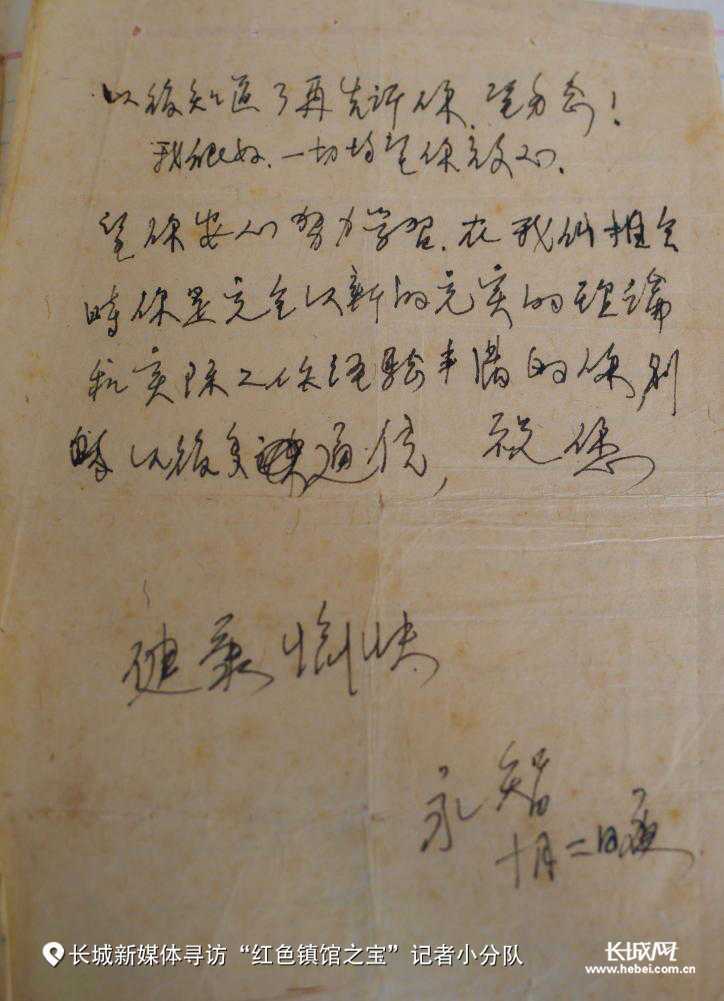 以後知道了再告訴你,望勿念!
我很好,一切均望你放心。
望你安心努力學習,在我們相会
時你是完全以新的充实的理論
和实际工作经驗丰满的你,别
以後多通信,祝你
健康愉快
永智
十月二日夜
长城新媒体寻访“红色镇馆之宝”记者小分队
长城网
www.hebei.com.cn